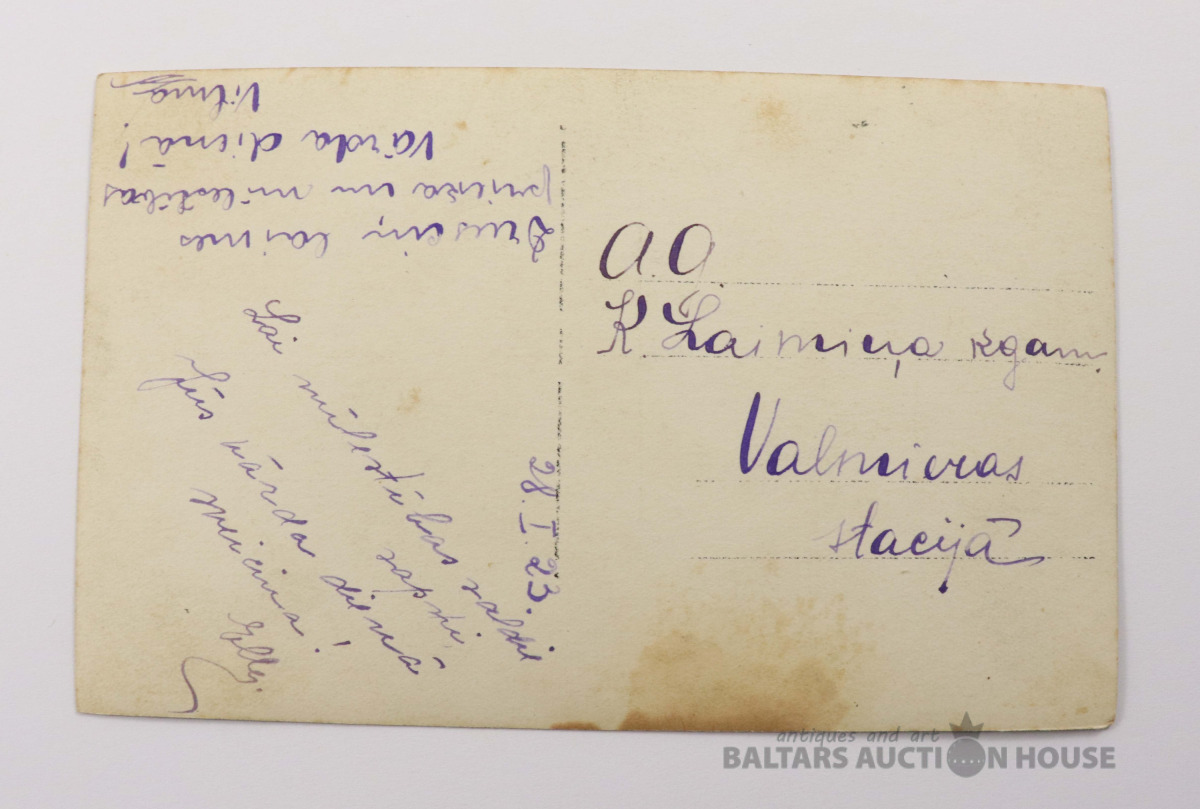 Druscin, laimes
prieka un mīlestības
Vārda dienā!
Vilma
Lai mīlestības saldie
sapņi,
Jūs vārda dienā
sveicina!
Elly.
28. I 23.
A. A.
K. Laimiņa kgam.
Valmieras
stacijā
antiques and art
BALTARS AUCTION HOUSE